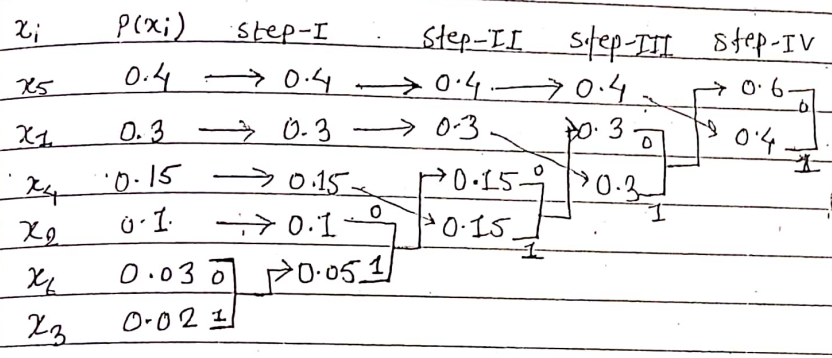 xi P(xi) step-I step-II step-III step-IV
x5 0.4 → 0.4 → 0.4 → 0.4 → 0.6 0
x1 0.3 → 0.3 → 0.3 → 0.3 0 0.4 1
x4 0.15 → 0.15 → 0.15 0 → 0.3 1
x2 0.1 → 0.1 0 → 0.15 1
x6 0.03 0 → 0.05 1
x3 0.02 1